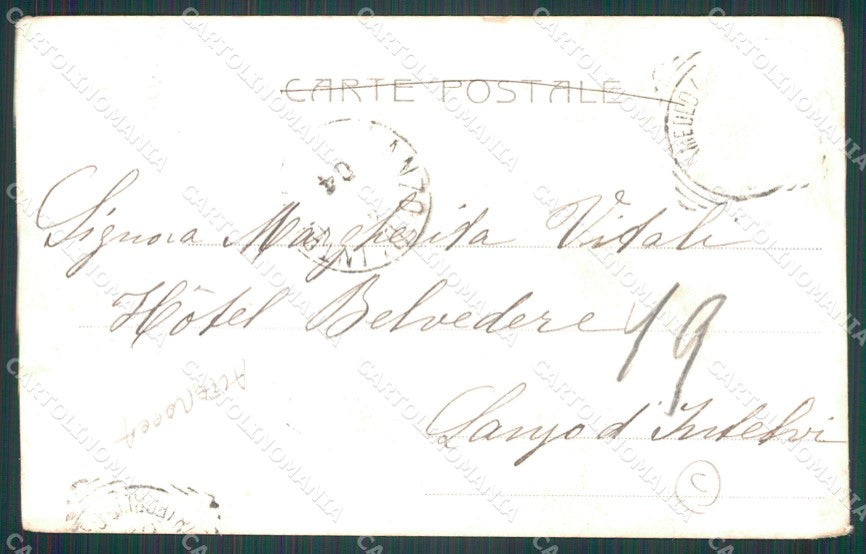 CARTE POSTALE
Signora Margherita Vitali
Hôtel Belvedere 19
Lanzo d'Intelvi
C
04
CARTOLINOMANIA